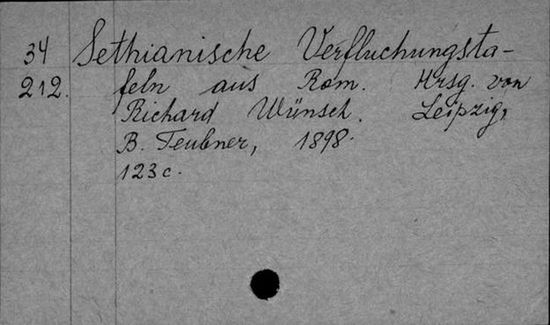 34 Sethianische Verfluchungsta-
212. feln aus Rom. Hrsg. von
Richard Wünsch. Leipzig,
B. Teubner, 1898.
123 c.